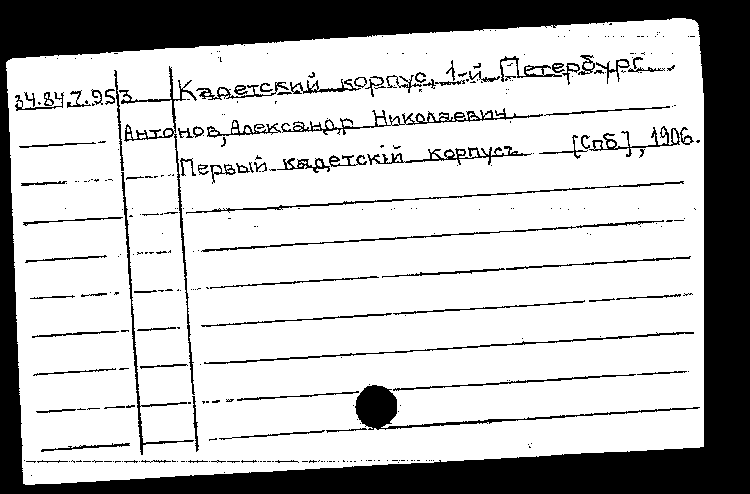 34.84.7.953 Кадетский корпус, 1-й Петербург.
Антонов, Александр Николаевич.
Первый кадетскій корпусъ. [Спб], 1906.